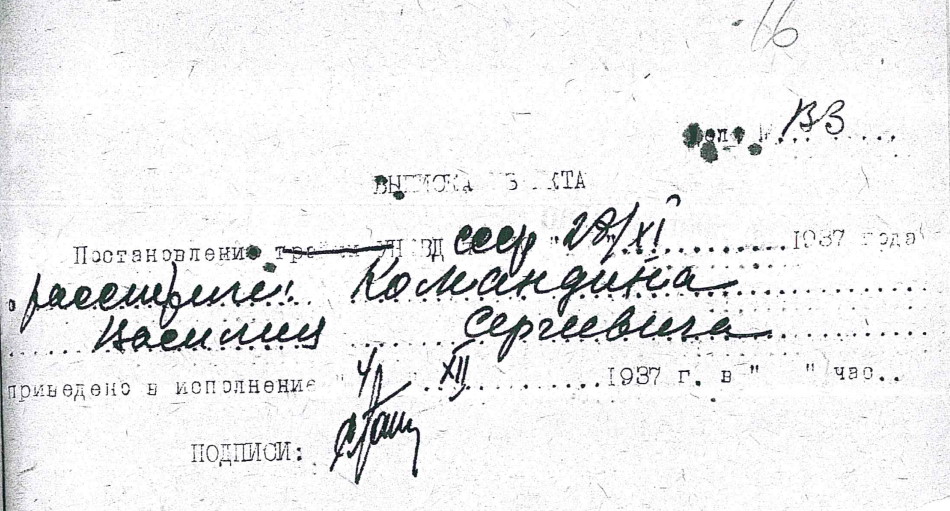 66
ВЗ
ВЫПИСКА ИЗ АКТА
Постановление тройки УНКВД СССР "28/XI 1937 года
о расстреле Командина
Василия Сергеевича
приведено в исполнение "4/XII 1937 г. в " " час..
ПОДПИСИ: